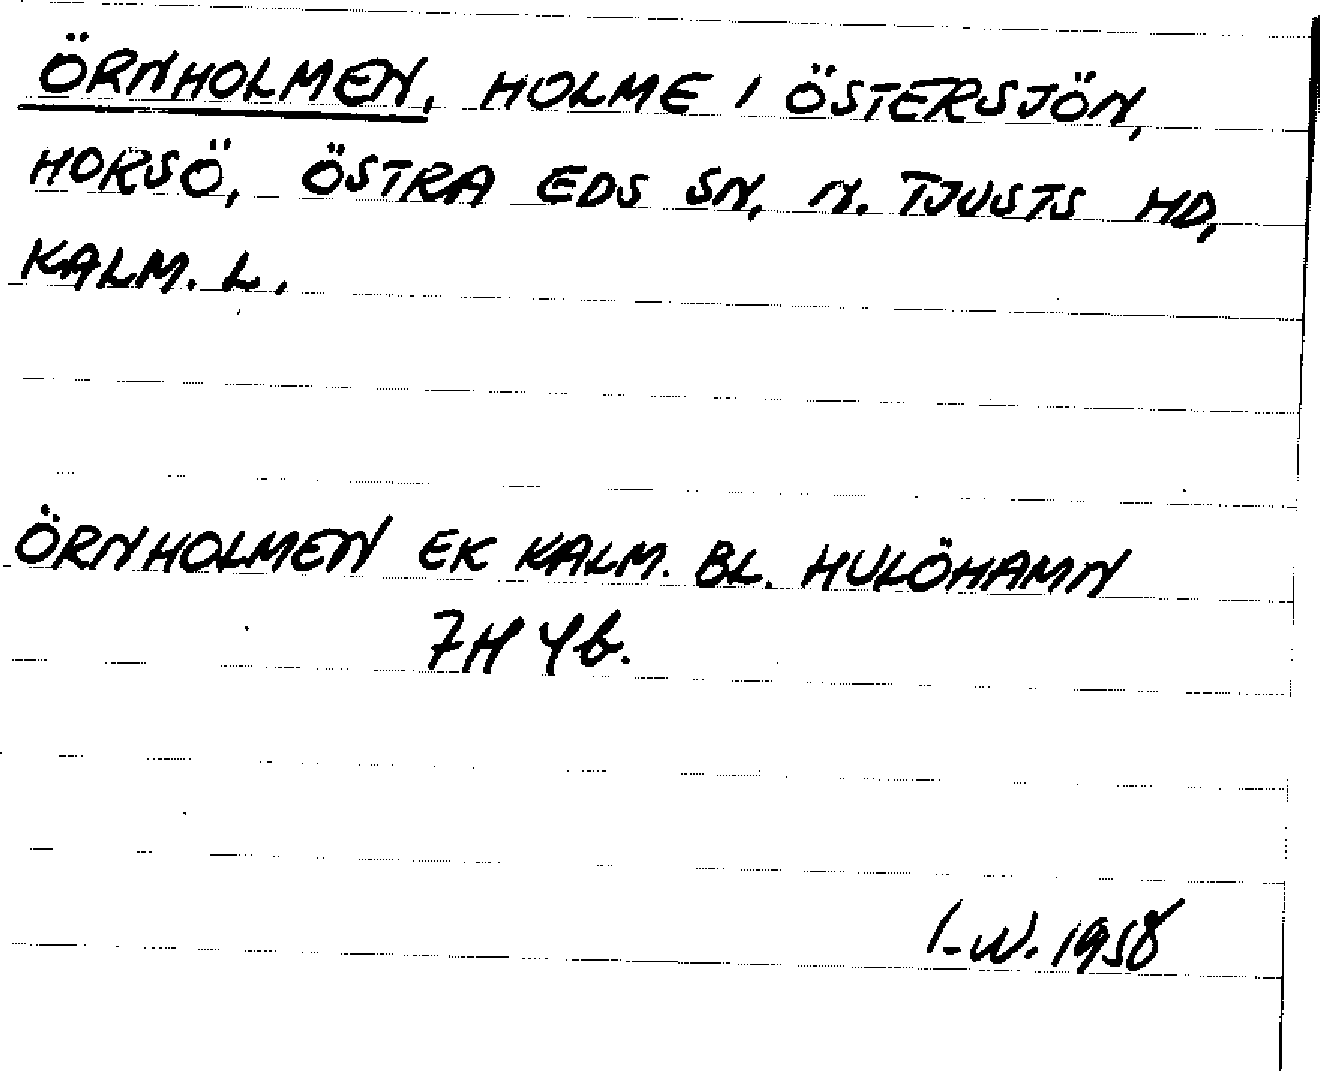 ÖRNHOLMEN, HOLME I ÖSTERSJÖN,
HORSÖ, ÖSTRA EDS SN, N. TJUSTS HD,
KALM. L.
ÖRNHOLMEN EK KALM. BL. HULÖHAMN
7H 4b.
I-W. 1958